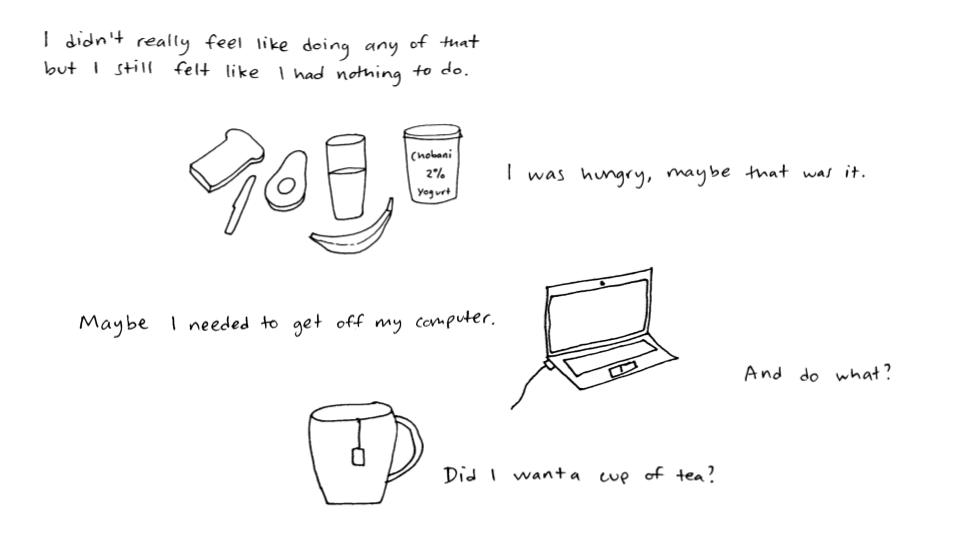 I didn't really feel like doing any of that
but I still felt like I had nothing to do.
Chobani
2%
Yogurt
I was hungry, maybe that was it.
Maybe I needed to get off my computer.
And do what?
Did I want a cup of tea?